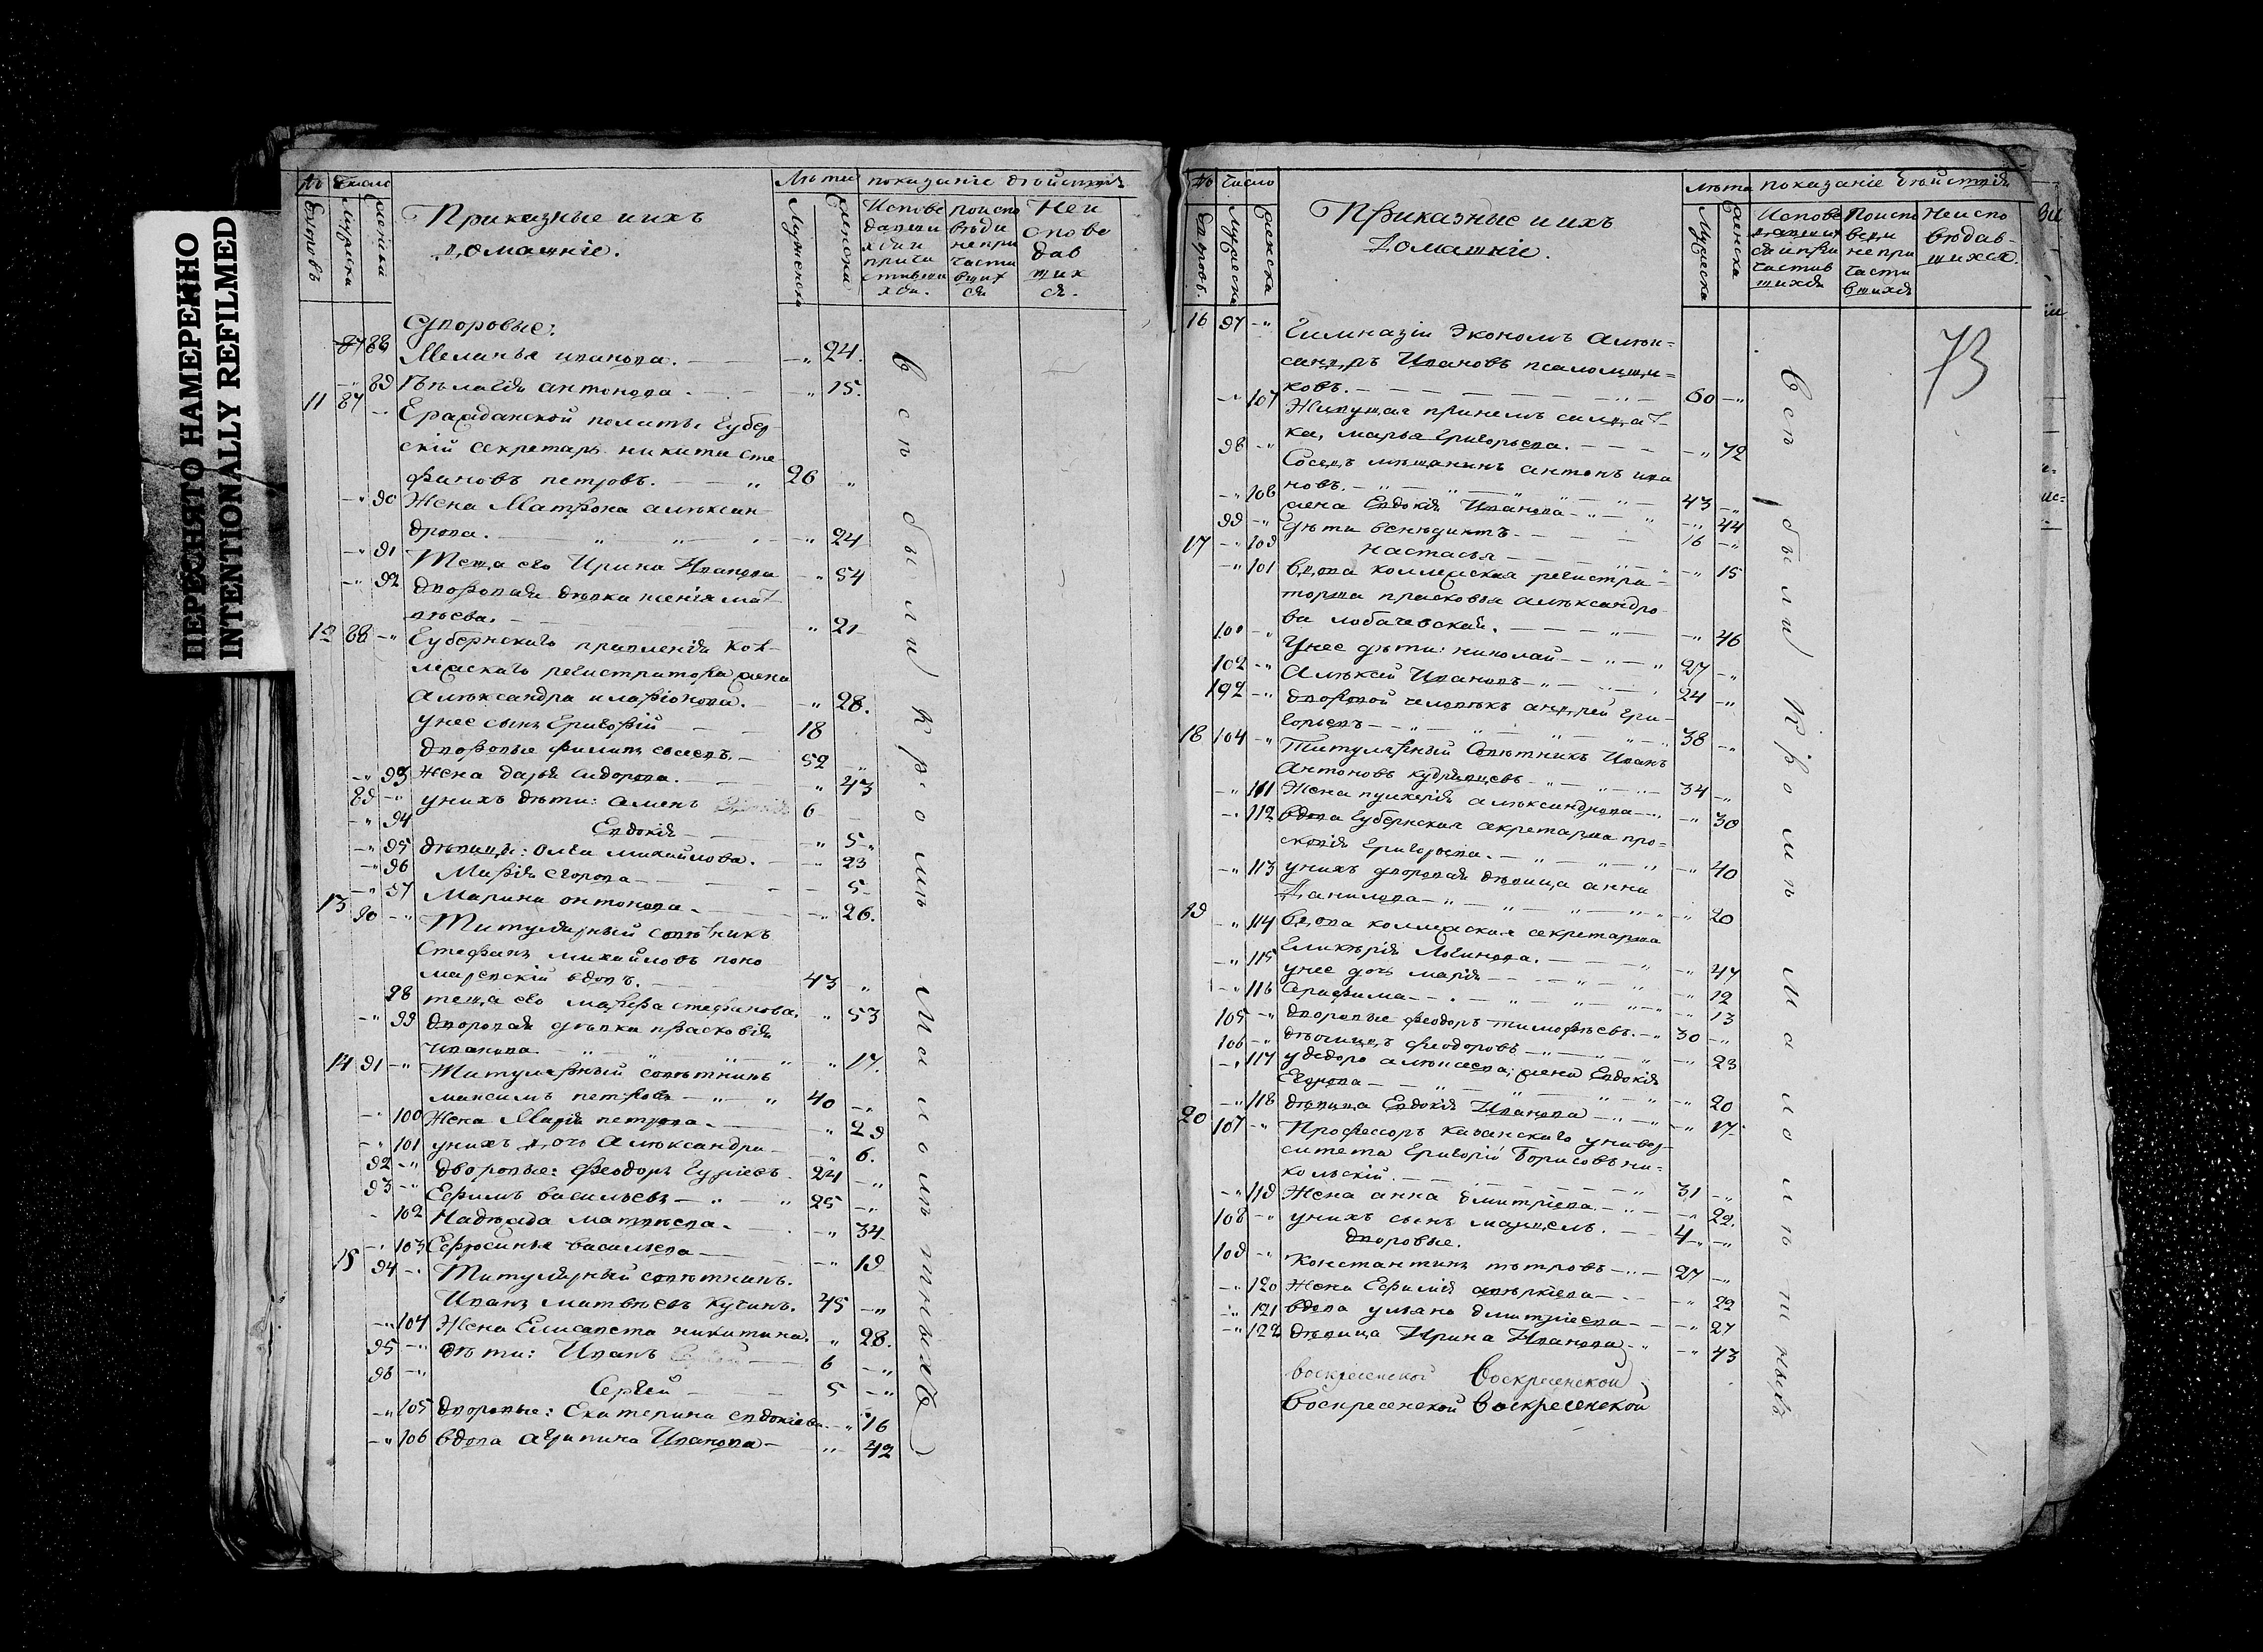 ПЕРЕСНЯТО НАМЕРЕННО
INTENTIONALLY REFILMED
Число
Лѣта показаніе
дворовъ
Мужеска
женска
Приказные и ихъ
домашніе.
Мужеска
женска
Испове
давши
хся и
прича
стивши
хся.
поиспо
вѣди
непри
части
вших
ся
Неи
спове
дав
ших
ся.
Дворовые:
87 88 Меланья иванова. 24.
89 Пелагія антонова 15.
11 87 Гражданской палаты Губер
скій секретарь никита сте
фановъ петровъ. 26
90 Жена Матрона алѣксан
дрова. 24
91 Теща его Ирина Иванова 54
92 дворовая дѣвка ксенія мат
вѣева. 21
12 88 Губернскаго правленія кол
лежскаго регистратора жена
Алѣксандра иларіонова. 28.
у нее сынъ Григорій 18
дворовые филипъ 52
93 Жена дарья сидорова. 43
89 у нихъ дѣти: 6
94 Евдокія 5
95 дѣвицы: Олга михайлова. 23
96 Марія егорова 5
97 Марина антонова 26.
13 90 Титулярный совѣтникъ
Стефанъ михайловъ поно
маревскій вдовъ. 43
98 теща его марѳа стефанова. 53
99 дворовая дѣвка прасковія
Иванова 17.
14 91 Титулярный совѣтникъ
максимъ петровъ 40
100 Жена Марія петрова 29
101 у нихъ дочь Алѣксандра 6.
92 дворовые: Феодоръ 24
93 Ефимъ васильевъ 25
102 Надежда матвѣева 34
103 Ефросинья васильева 19
15 94 Титулярный совѣтникъ.
Иванъ матвѣевъ кучинъ. 45
104 Жена Елисавета никитина. 28.
95 дѣти: Иванъ 6
96 Сергѣй 5
105 дворовые: Екатерина евдокіева 16
106 вдова агрипина Иванова 42
всѣ были кромѣ малолѣтныхъ
Число
лѣта показаніе дѣйствія
дворовъ.
Мужеска
женска
Приказные и ихъ
Домашніе.
Мужеска
женска
Испове
давших
ся и при
частив
шихся
Поиспо
веди
непри
части
вшихся
Неиспо
вѣдав
шихся.
73
16 97 Гимназіи Экономъ Алѣк=
сандръ Ивановъ псаломщи=
ковъ. 60
107 Живущая при немъ солдат
ка, марья Григорьева. 72
98 Сосѣдъ мѣщанинъ антонъ ива
новъ. 43
108 жена Евдокія Иванова 44
99 дѣти венедиктъ 16
17 109 настасья 15
101 вдова коллежская регистра=
торша прасковья алѣксандро
ва лобачевская. 46
100 У нее дѣти: николай 27
102 Алѣксей Ивановъ 24
192 дворовой человѣкъ андрей Гри=
горьевъ 38
18 104 Титулярный Совѣтникъ Иванъ
Антоновъ кудрявцевъ 34
111 Жена пулхерія алѣксандрова 30
112 вдова Губернская секретарша про=
скопія Григорьева. 40
113 у нихъ дворовая дѣвица анна
Данилова 20
19 114 вдова коллежская секретарша
Гликѣрія Логинова. 47
115 у нее дочь марія 12
116 Серафима 13
105 дворовые феодоръ тимофѣевъ. 30
106 феодоровъ 23
117 у ѳедора жена Евдокія
Егорова 20
118 дѣвица Евдокія Иванова 17
20 107 Профессоръ казанскаго универ
ситета Григорій Борисовъ ни=
кольскій 31
119 Жена анна дмитріева 22.
108 у нихъ сынъ 4
дворовые.
109 Константинъ пѣтровъ 27
120 Жена Ефимія 22
121 вдова ульяна дмитріева 27
122 дѣвица Ирина Иванова 43
воскресенской Воскресенской
Воскресенской Воскресенской
всѣ были кромѣ малолѣтныхъ